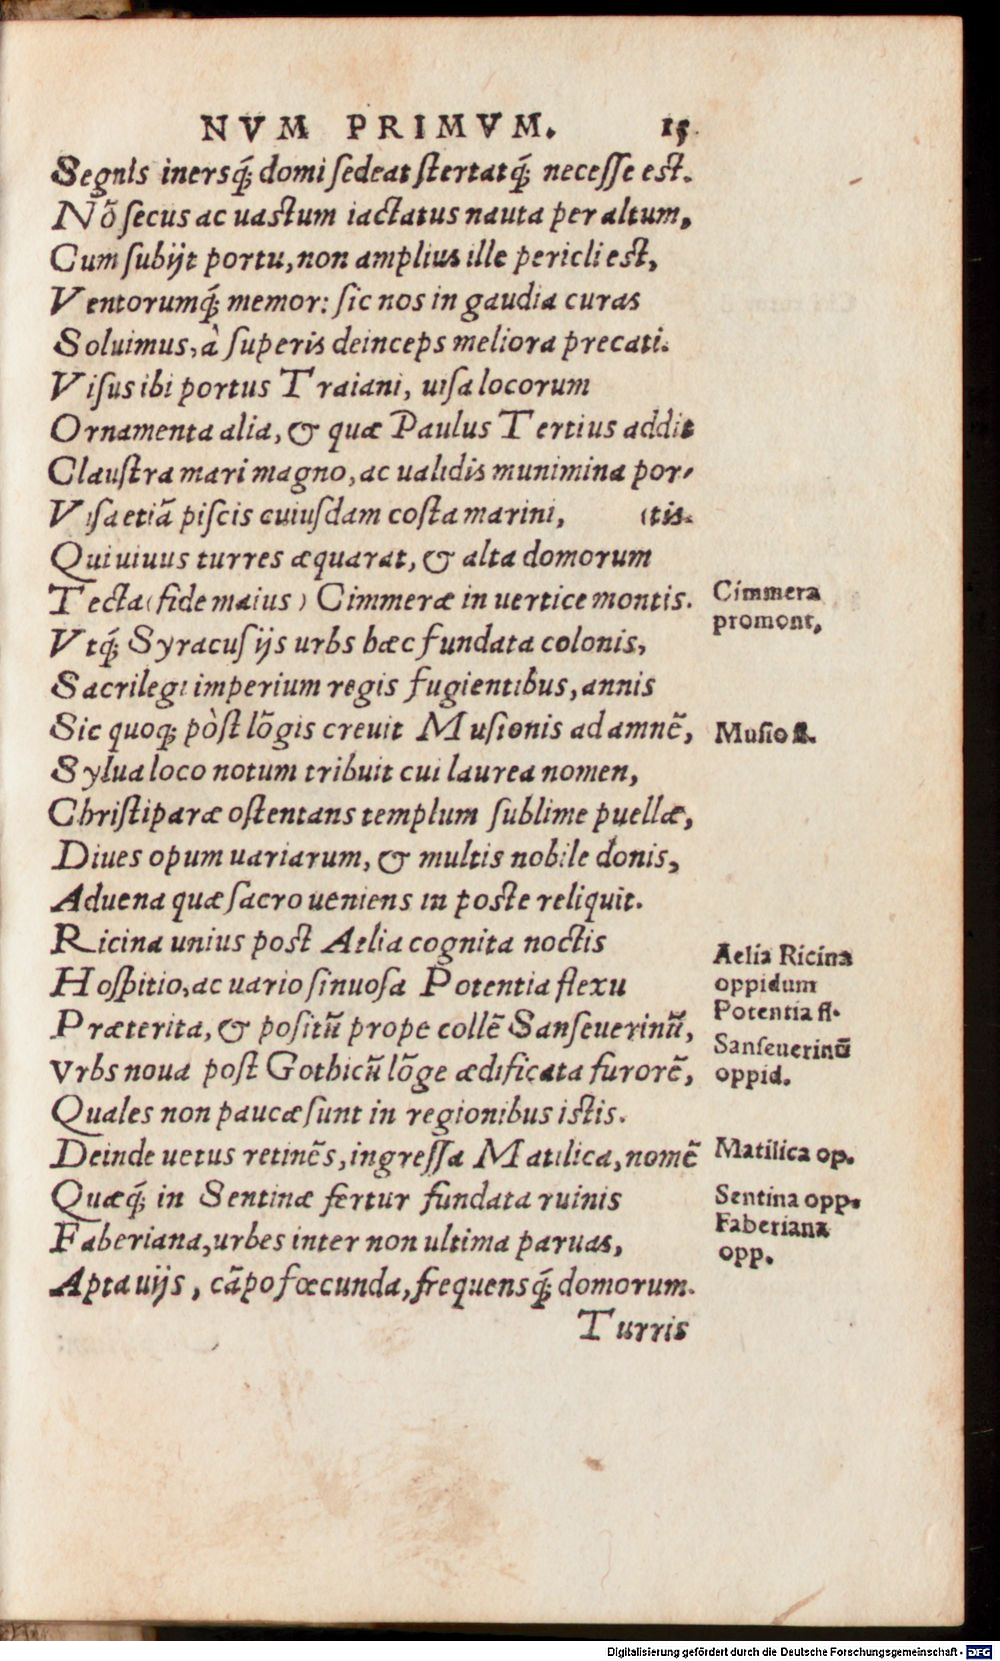 NVM PRIMVM. 15
Segnis inersq́; domi sedeat stertatq́; necesse est.
Nõ secus ac uastum iactatus nauta per altum,
Cum subijt portu, non amplius ille pericli est,
Ventorumq́; memor: sic nos in gaudia curas
Soluimus, à superis deinceps meliora precati.
Visus ibi portus Traiani, uisa locorum
Ornamenta alia, & quæ Paulus Tertius addit
Claustra mari magno, ac ualidis munimina por-
Visa etiã piscis cuiusdam costa marini, (tis.
Qui uiuus turres æquarat, & alta domorum
Tecta (fide maius) Cimmeræ in uertice montis.
Cimmera
promont.
Vtq́; Syracusijs urbs hæc fundata colonis,
Sacrilegi imperium regis fugientibus, annis
Sic quoq; pòst lõgis creuit Musionis ad amnẽ,
Musio fl.
Sylua loco notum tribuit cui laurea nomen,
Christiparæ ostentans templum sublime puellæ,
Diues opum uariarum, & multis nobile donis,
Aduena quæ sacro ueniens in poste reliquit.
Ricina unius post Aelia cognita noctis
Aelia Ricina
oppidum
Hospitio, ac uario sinuosa Potentia flexu
Potentia fl.
Præterita, & positũ prope collẽ Sanseuerinũ,
Sanseuerinũ
oppid.
Vrbs noua post Gothicũ lõge ædificata furorẽ,
Quales non paucæ sunt in regionibus istis.
Deinde uetus retinẽs, ingressa Matilica, nomẽ
Matilica op.
Quæq́; in Sentinæ fertur fundata ruinis
Sentina opp.
Faberiana
opp.
Faberiana, urbes inter non ultima paruas,
Apta uijs, cãpo fœcunda, frequensq́; domorum.
Turris
Digitalisierung gefördert durch die Deutsche Forschungsgemeinschaft - DFG